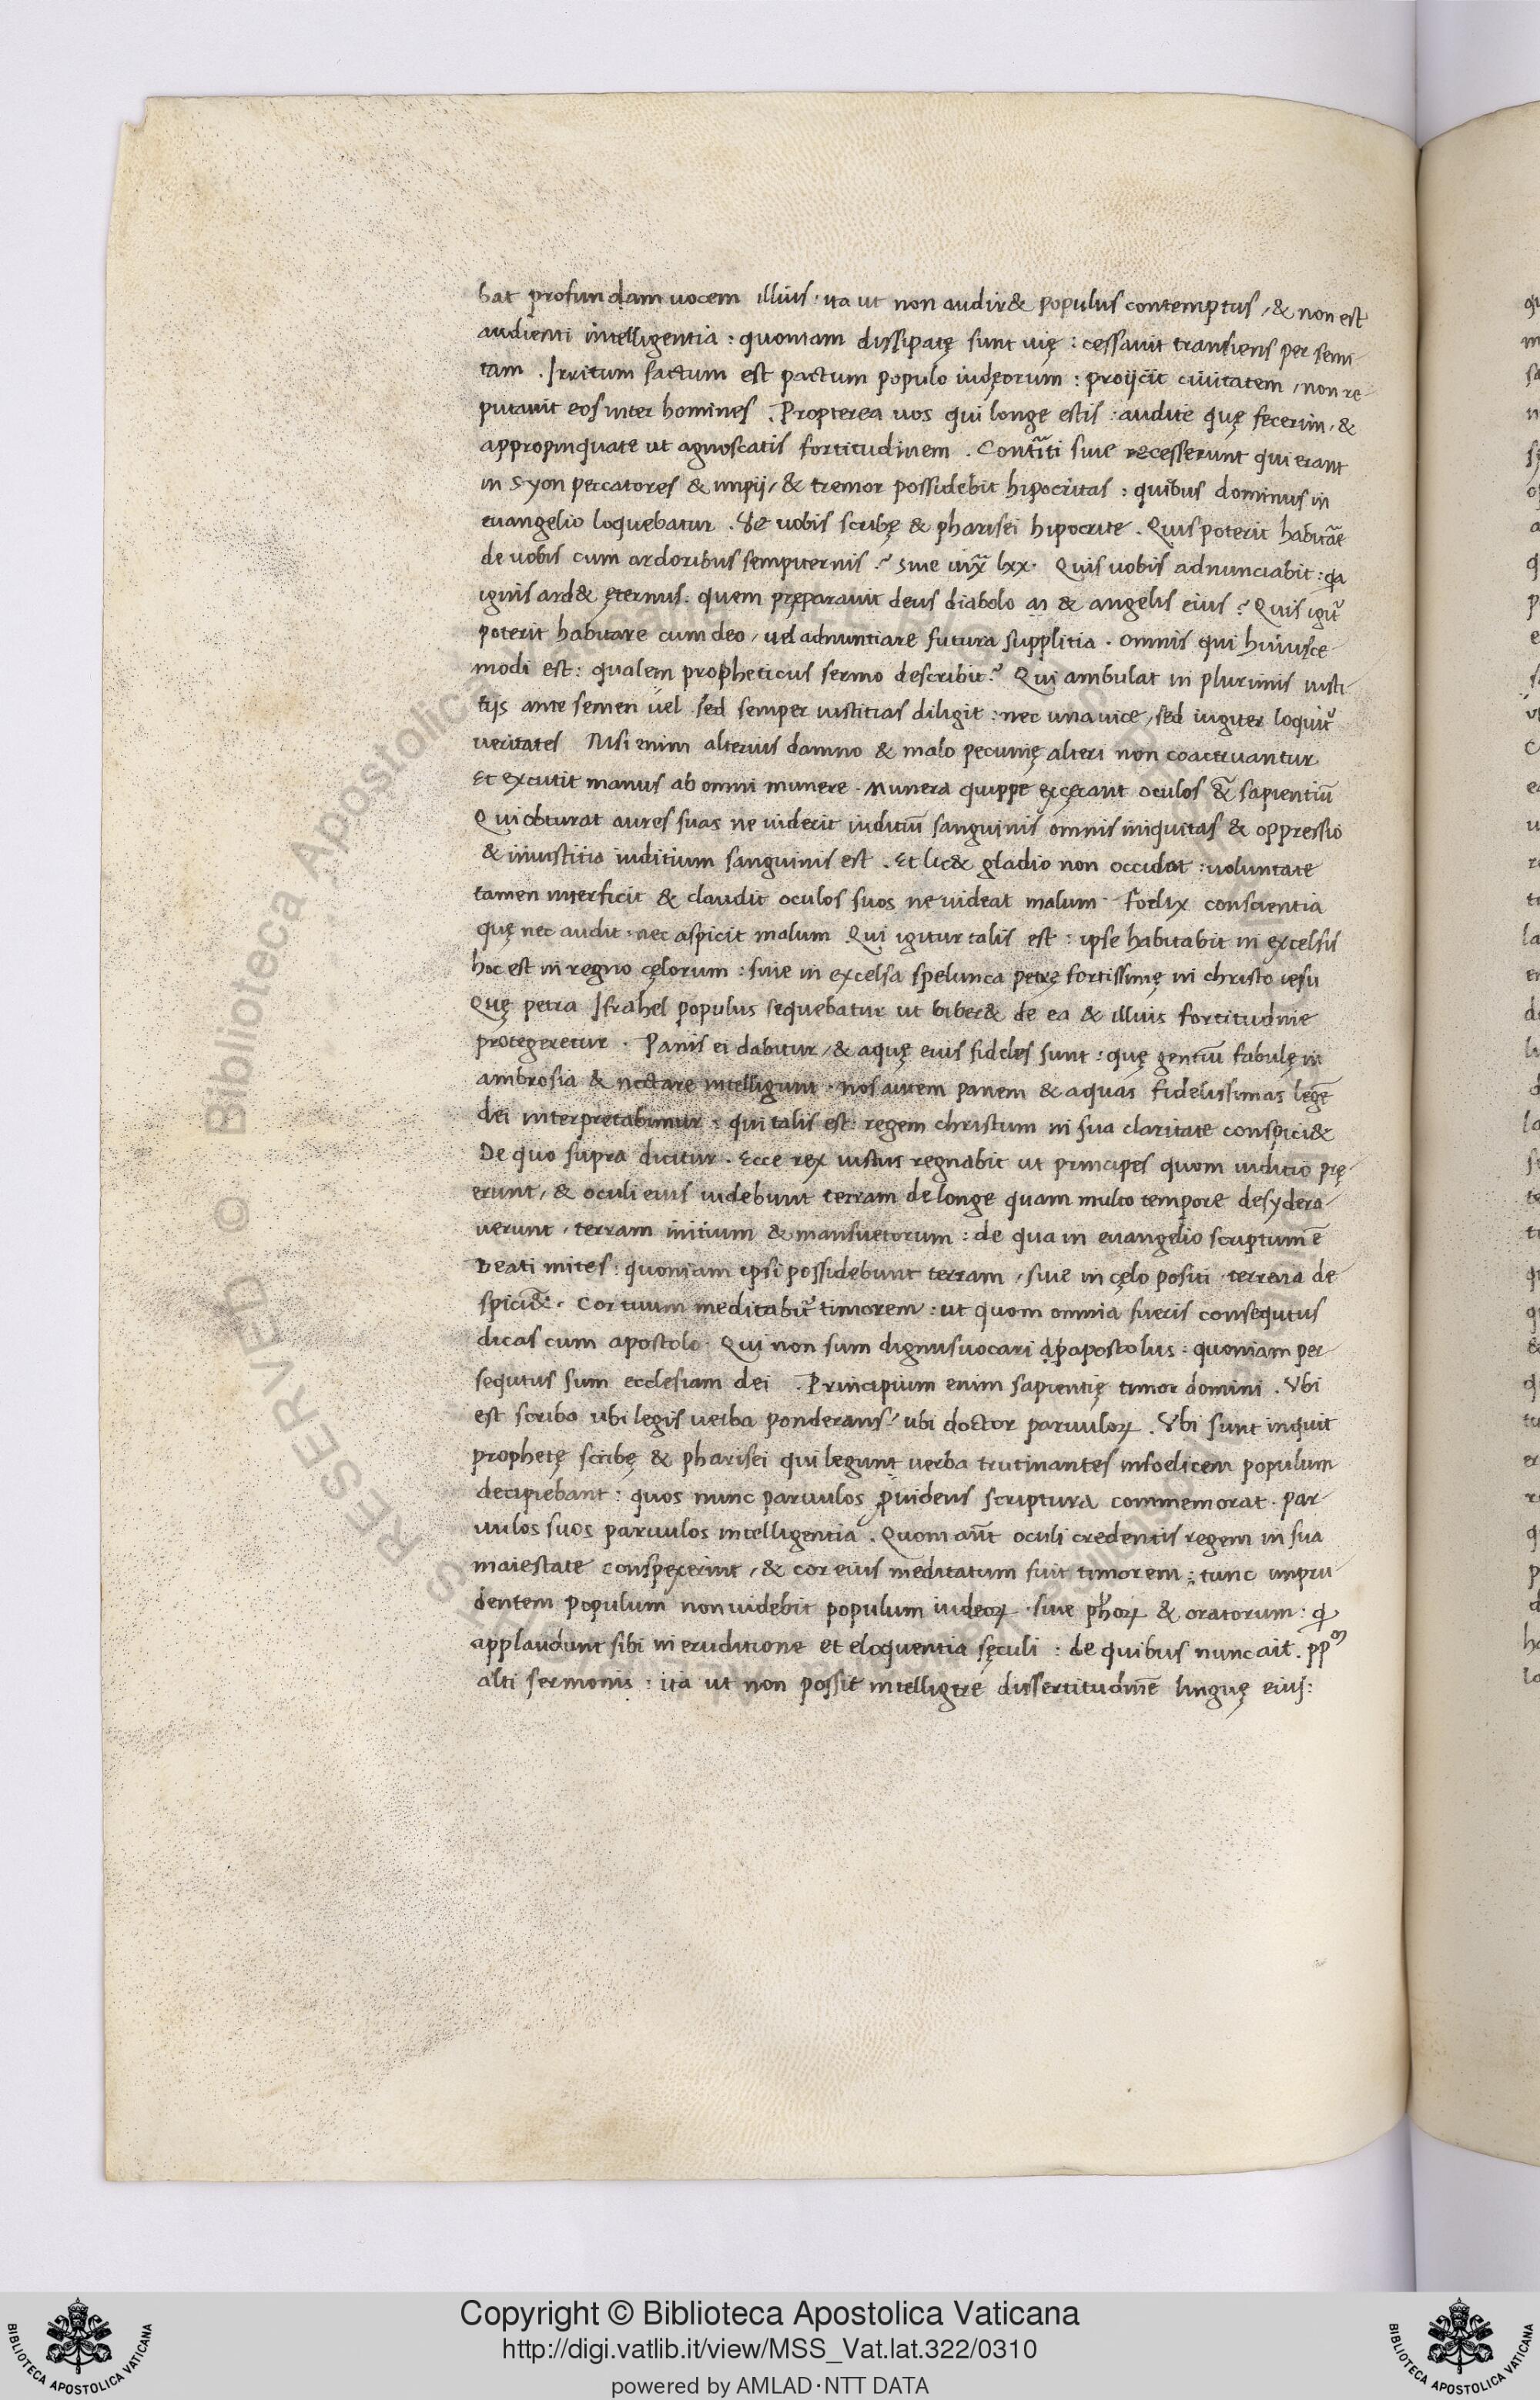 bat profundam uocem illius · ita ut non audir& populus contemptus , & non est
audienti intelligentia : quoniam dissipatę sunt uię : cessauit transiens per semi-
tam . Irritum factum est pactum populo iudęorum : proijcit ciuitatem , non re-
putauit eos inter homines . Propterea uos qui longe estis : audite quę fecerim , &
appropinquate ut agnoscatis fortitudinem . Contr̃iti siue recesserunt qui erant
in Syon peccatores & impij , & tremor possidebit hipocritas : quibus dominus in
euangelio loquebatur . Ve uobis scribę & pharisei hipocrite . Quis poterit habitar̃e
de uobis cum ardoribus sempiternis ? siue lxx · Quis uobis adnunciabit :
ignis ard& ęternus : quem pręparauit deus diabolo & angelis eius ? Quis igit᷑
poterit habitare cum deo , uel adnuntiare futura supplitia . omnis qui huiusce-
modi est : qualem propheticus sermo describit ? Qui ambulat in plurimis iusti-
tijs ante semen uel sed semper iustitias diligit : nec una uice , sed iugiter loquit᷑
ueritates Nisi enim alterius damno & malo pecunię alteri non coaceruantur
Et excutit manus ab omni munere . Munera quippe excęcant oculos & sapientiũ
Qui obturat aures suas ne uiderit iuditiũ sanguinis omnis iniquitas & oppressio
& iniustitia iuditium sanguinis est . Et lic& gladio non occidat : uoluntate
tamen interficit & claudit oculos suos ne uideat malum foelix conscientia
quę nec audit · nec aspicit malum Qui igitur talis est : ipse habitabit in excelsis
hoc est in regno cęlorum : siue in excelsa spelunca petrę fortissimę in christo iesu
Quę petra Israhel populus sequebatur ut biber& de ea & illius fortitudine
protegeretur . Panis ei dabitur , & aquę eius fideles sunt : quę gentiũ fabulę in
ambrosia & nectare intelligunt · nos autem panem & aquas fidelissimas legẽ
dei interpretabimur : qui talis est : regem christum in sua claritate conspici&
De quo supra dicitur . Ecce rex iustus regnabit ut principes quom iuditio prę-
erunt , & oculi eius uidebunt terram de longe quam multo tempore desydera-
uerunt · terram mitium & mansuetorum : de qua in euangelio scriptum ẽ
Beati mites : quoniam ipsi possidebunt terram , siue in cęlo positi terrena de
spici& . Cor tuum meditabit᷑ timorem : ut quom omnia fueris consequtus
dicas cum apostolo · Qui non sum dignus uocari apostolus : quoniam per-
sequtus sum ecclesiam dei . Principium enim sapientię timor domini . Vbi
est scriba ubi legis uerba ponderans ? ubi doctor paruuloꝝ . Vbi sunt inquit
prophetę scribę & pharisei qui legunt uerba trutinantes infoelicem populum
decipiebant : quos nunc paruulos ꝓuidens scriptura commemorat . par-
uulos suos paruulos intelligentia . Quom aũt oculi credentis regem in sua
maiestate conspexerint , & cor eius meditatum fuit timorem : tunc impru-
dentem populum non uidebit populum iudeoꝝ siue ph̃oꝝ & oratorum : q̃
applaudunt sibi in eruditione et eloquentia sęculi : de quibus nunc ait . pp̃m
alti sermonis : ita ut non possit intelligere dissertitudinẽ linguę eius :
Copyright © Biblioteca Apostolica Vaticana
http://digi.vatlib.it/view/MSS_Vat.lat.322/0310
powered by AMLAD·NTT DATA